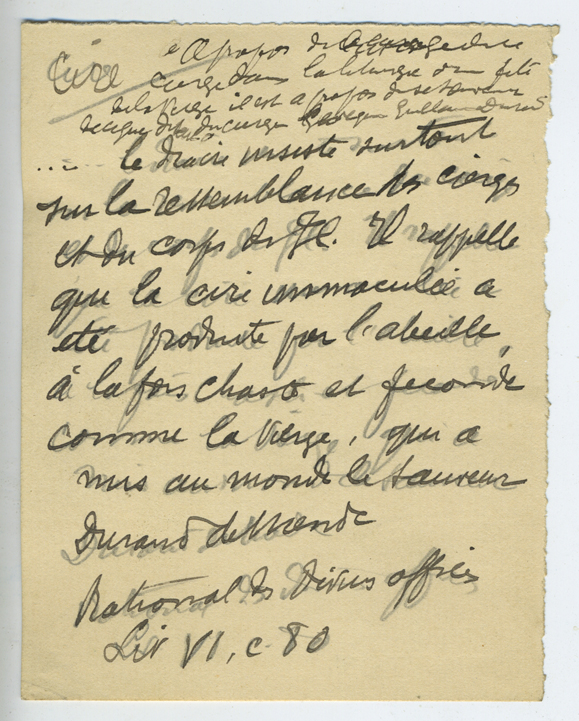 Cire
à propos du cierge
cierge dans la liturgie d'une fête
de la Vierge il est à propos de se souvenir
de ce que dit du cierge Guillaume Durand
..... le diacre insiste surtout
sur la ressemblance des cierges
et du corps de J C. Il rappelle
que la cire immaculée a
été produite par l'abeille,
à la fois chaste et féconde
comme la Vierge, qui a
mis au monde le Sauveur
Durand de Mende
Rational des divins offices
Liv VI, c. 80